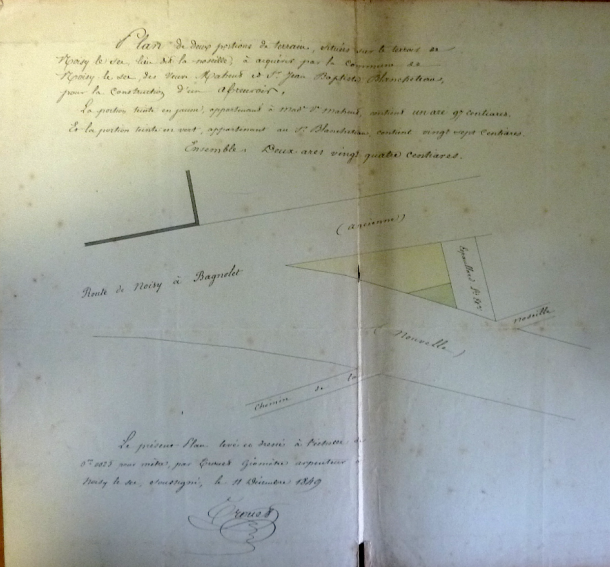 Plan de deux portions de terrain, situées sur le terroir de
Noisy le sec lieu dit la noseille, à acquérir par la commune de
Noisy le sec, des Veuve Matenat et Sr. Jean Baptiste Blancheteau,
pour la construction d'un abreuvoir.
La portion teinte en jaune, appartenant à Made. Ve. contient un are 97 centiares.
Et la portion teinte en vert, appartenant au Sr. Blancheteau, contient vingt sept centiares
Ensemble = Deux ares vingt quatre centiares.
(ancienne)
Route de Noisy à Bagnolet
noseille
(Nouvelle)
Chemin de la
Le présent Plan levé et dressé à l'échelle de
par mètre, par Géomètre arpenteur à
Noisy le sec, soussigné, le 11 Décembre 1849